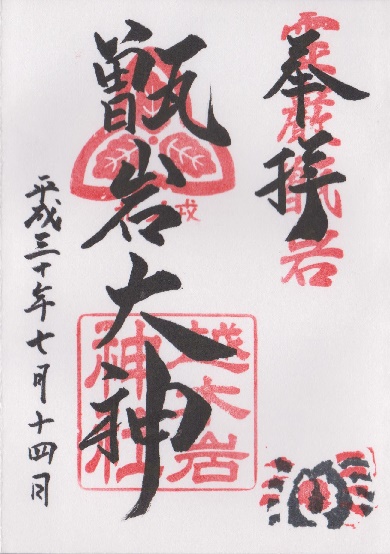 奉拝
霊巌甑岩
甑岩大神
越木岩
神社
平成三十年七月十四日